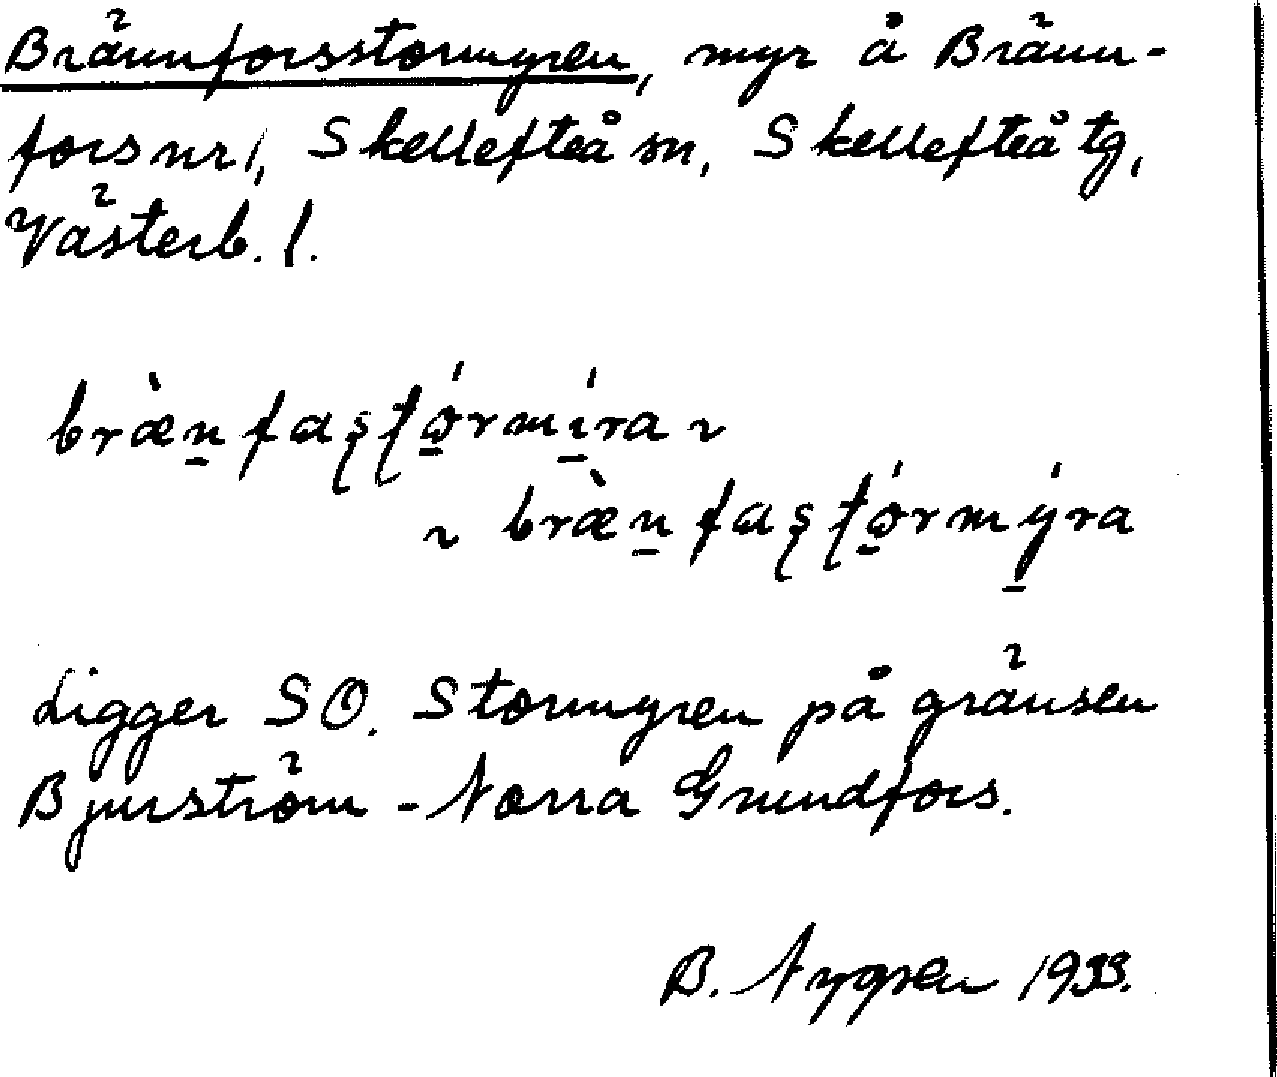 Brännforsstormyren, myr å Bränn-
fors nr 1, Skellefteå sn, Skellefteå tg,
Västerb. l.
bræ̀n̲faʂʈó̲rmí̲ra ~
~ bræ̀n̲faʂʈó̲rmý̲ra
Ligger SO. Stormyren på gränsen
Bjurström - Norra Grundfors.
B. Nygren 1933.